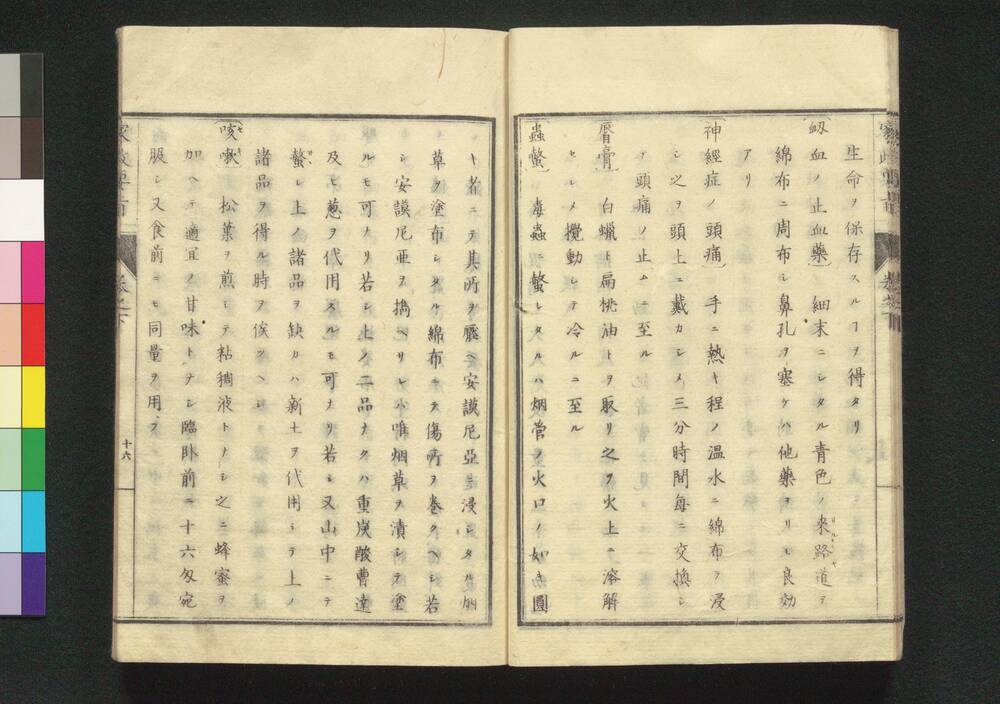 生命ヲ保存スルヿヲ得タリ
衂血ノ止血藥 細末ニシタル青色ノ來路道ヲ
綿布ニ周布シ鼻孔ヲ塞ケハ他藥ヨリモ良効
アリ
神經症ノ頭痛 手ニ熱キ程ノ温水ニ綿布ヲ浸
シ之ヲ頭上ニ戴カシメ三分時間毎ニ交換シ
テ頭痛ノ止ムニ至ル
脣膏 白蝋ト扁桃油トヲ取リ之ヲ火上ニ溶解
セシメ攪動シテ冷ルニ至ル
蟲螫 毒蟲ニ螫レタルハ烟管ノ火口ノ如キ圓
キ者ニテ其所ヲ壓ヘ安謨尼亞ニ浸シタル烟
草ヲ塗布シタル綿布ニテ傷所ヲ巻クヘシ若
シ安謨尼亜ヲ携ヘサレハ唯烟草ヲ漬シテ塗
ルモ可ナリ若シ上ノ二品ナクハ重炭酸曹達
及ヒ葱ヲ代用スルモ可ナリ若シ又山中ニテ
螫レ上ノ諸品ヲ缺カハ新土ヲ代用シテ上ノ
諸品ヲ得ル時ヲ俟ツヘシ
咳嗽 松葉ヲ煎シテ粘稠液トナシ之ニ蜂蜜ヲ
加ヘテ適宜ノ甘味トナシ臨卧前ニ十六匁宛
服シ又食前ニモ同量ヲ用フ
巻之下
十六